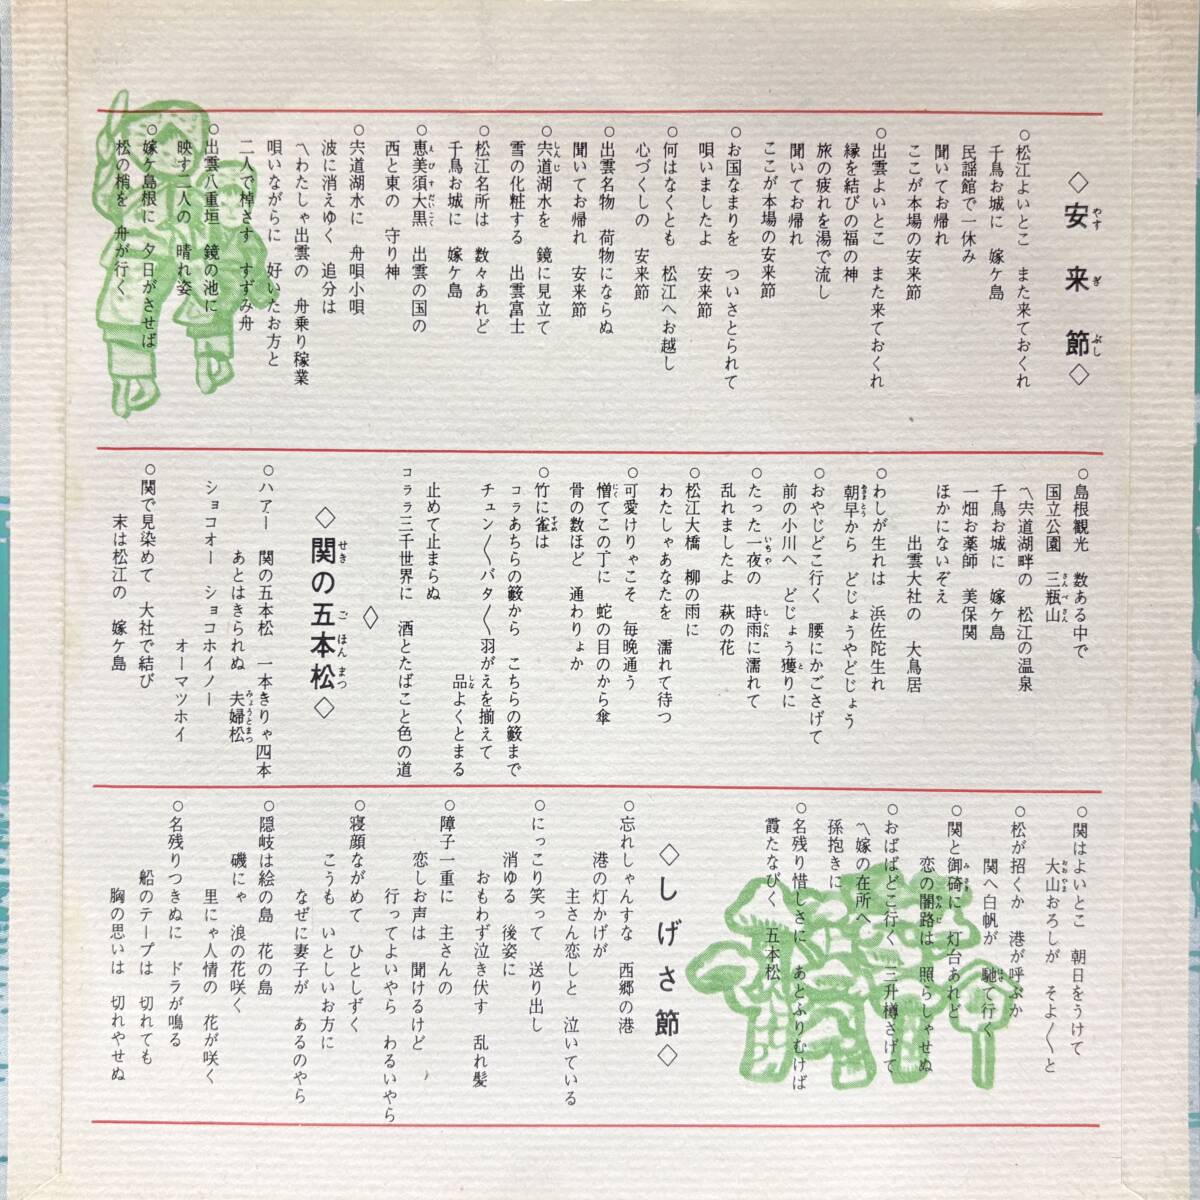 ◇安来節◇
○松江よいとこ また来ておくれ
千鳥お城に 嫁ヶ島
民謡館で一休み
聞いてお帰れ
ここが本場の安来節
○出雲よいとこ また来ておくれ
縁を結びの福の神
旅の疲れを湯で流し
聞いてお帰れ
ここが本場の安来節
○お国なまりを ついさとられて
唄いましたよ 安来節
○何はなくとも 松江へお越し
心づくしの 安来節
○出雲名物 荷物にならぬ
聞いてお帰れ 安来節
○宍道湖水を 鏡に見立て
雪の化粧する 出雲富士
○松江名所は 数々あれど
千鳥お城に 嫁ヶ島
○恵美須大黒 出雲の国の
西と東の 守り神
○宍道湖水に 舟唄小唄
波に消えゆく 追分は
〽わたしゃ出雲の 舟乗り稼業
唄いながらに 好いたお方と
二人で棹さす すずみ舟
○出雲八重垣 鏡の池に
映す二人の 晴れ姿
○嫁ヶ島根に 夕日がさせば
松の梢を 舟が行く
○島根観光 数ある中で
国立公園 三瓶山
〽宍道湖畔の 松江の温泉
千鳥お城に 嫁ヶ島
一畑お薬師 美保関
ほかにないぞえ
出雲大社の 大鳥居
○わしが生れは 浜佐陀生れ
朝早から どじょうやどじょう
○おやじどこ行く 腰にかごさげて
前の小川へ どじょう獲りに
○たった一夜の 時雨に濡れて
乱れましたよ 萩の花
○松江大橋 柳の雨に
わたしゃあなたを 濡れて待つ
○可愛けりゃこそ 毎晩通う
憎てこの丁に 蛇の目のから傘
骨の数ほど 通わりょか
○竹に雀は
コラあちらの籔から こちらの籔まで
チュン〱バタ〱羽がえを揃えて
品よくとまる
止めて止まらぬ
コララ三千世界に 酒とたばこと色の道
◇
◇関の五本松◇
○ハアー 関の五本松 一本きりゃ四本
あとはきられぬ 夫婦松
ショコオー ショコホイノー
オーマツホイ
○関で見染めて 大社で結び
末は松江の 嫁ヶ島
○関はよいとこ 朝日をうけて
大山おろしが そよ〱と
○松が招くか 港が呼ぶか
関へ白帆が 馳て行く
○関と御碕に 灯台あれど
恋の闇路は 照らしゃせぬ
○おばばどこ行く 三升樽さげて
〽嫁の在所へ
孫抱きに
○名残り惜しさに あとふりむけば
霞たなびく 五本松
◇しげさ節◇
○忘れしゃんすな 西郷の港
港の灯かげが
主さん恋しと 泣いている
○にっこり笑って 送り出し
消ゆる 後姿に
おもわず泣き伏す 乱れ髪
○障子一重に 主さんの
恋しお声は 聞けるけど
行ってよいやら わるいやら
○寝顔ながめて ひとしずく
こうも いとしいお方に
なぜに妻子が あるのやら
○隠岐は絵の島 花の島
磯にゃ 浪の花咲く
里にゃ人情の 花が咲く
○名残りつきぬに ドラが鳴る
船のテープは 切れても
胸の思いは 切れやせぬ